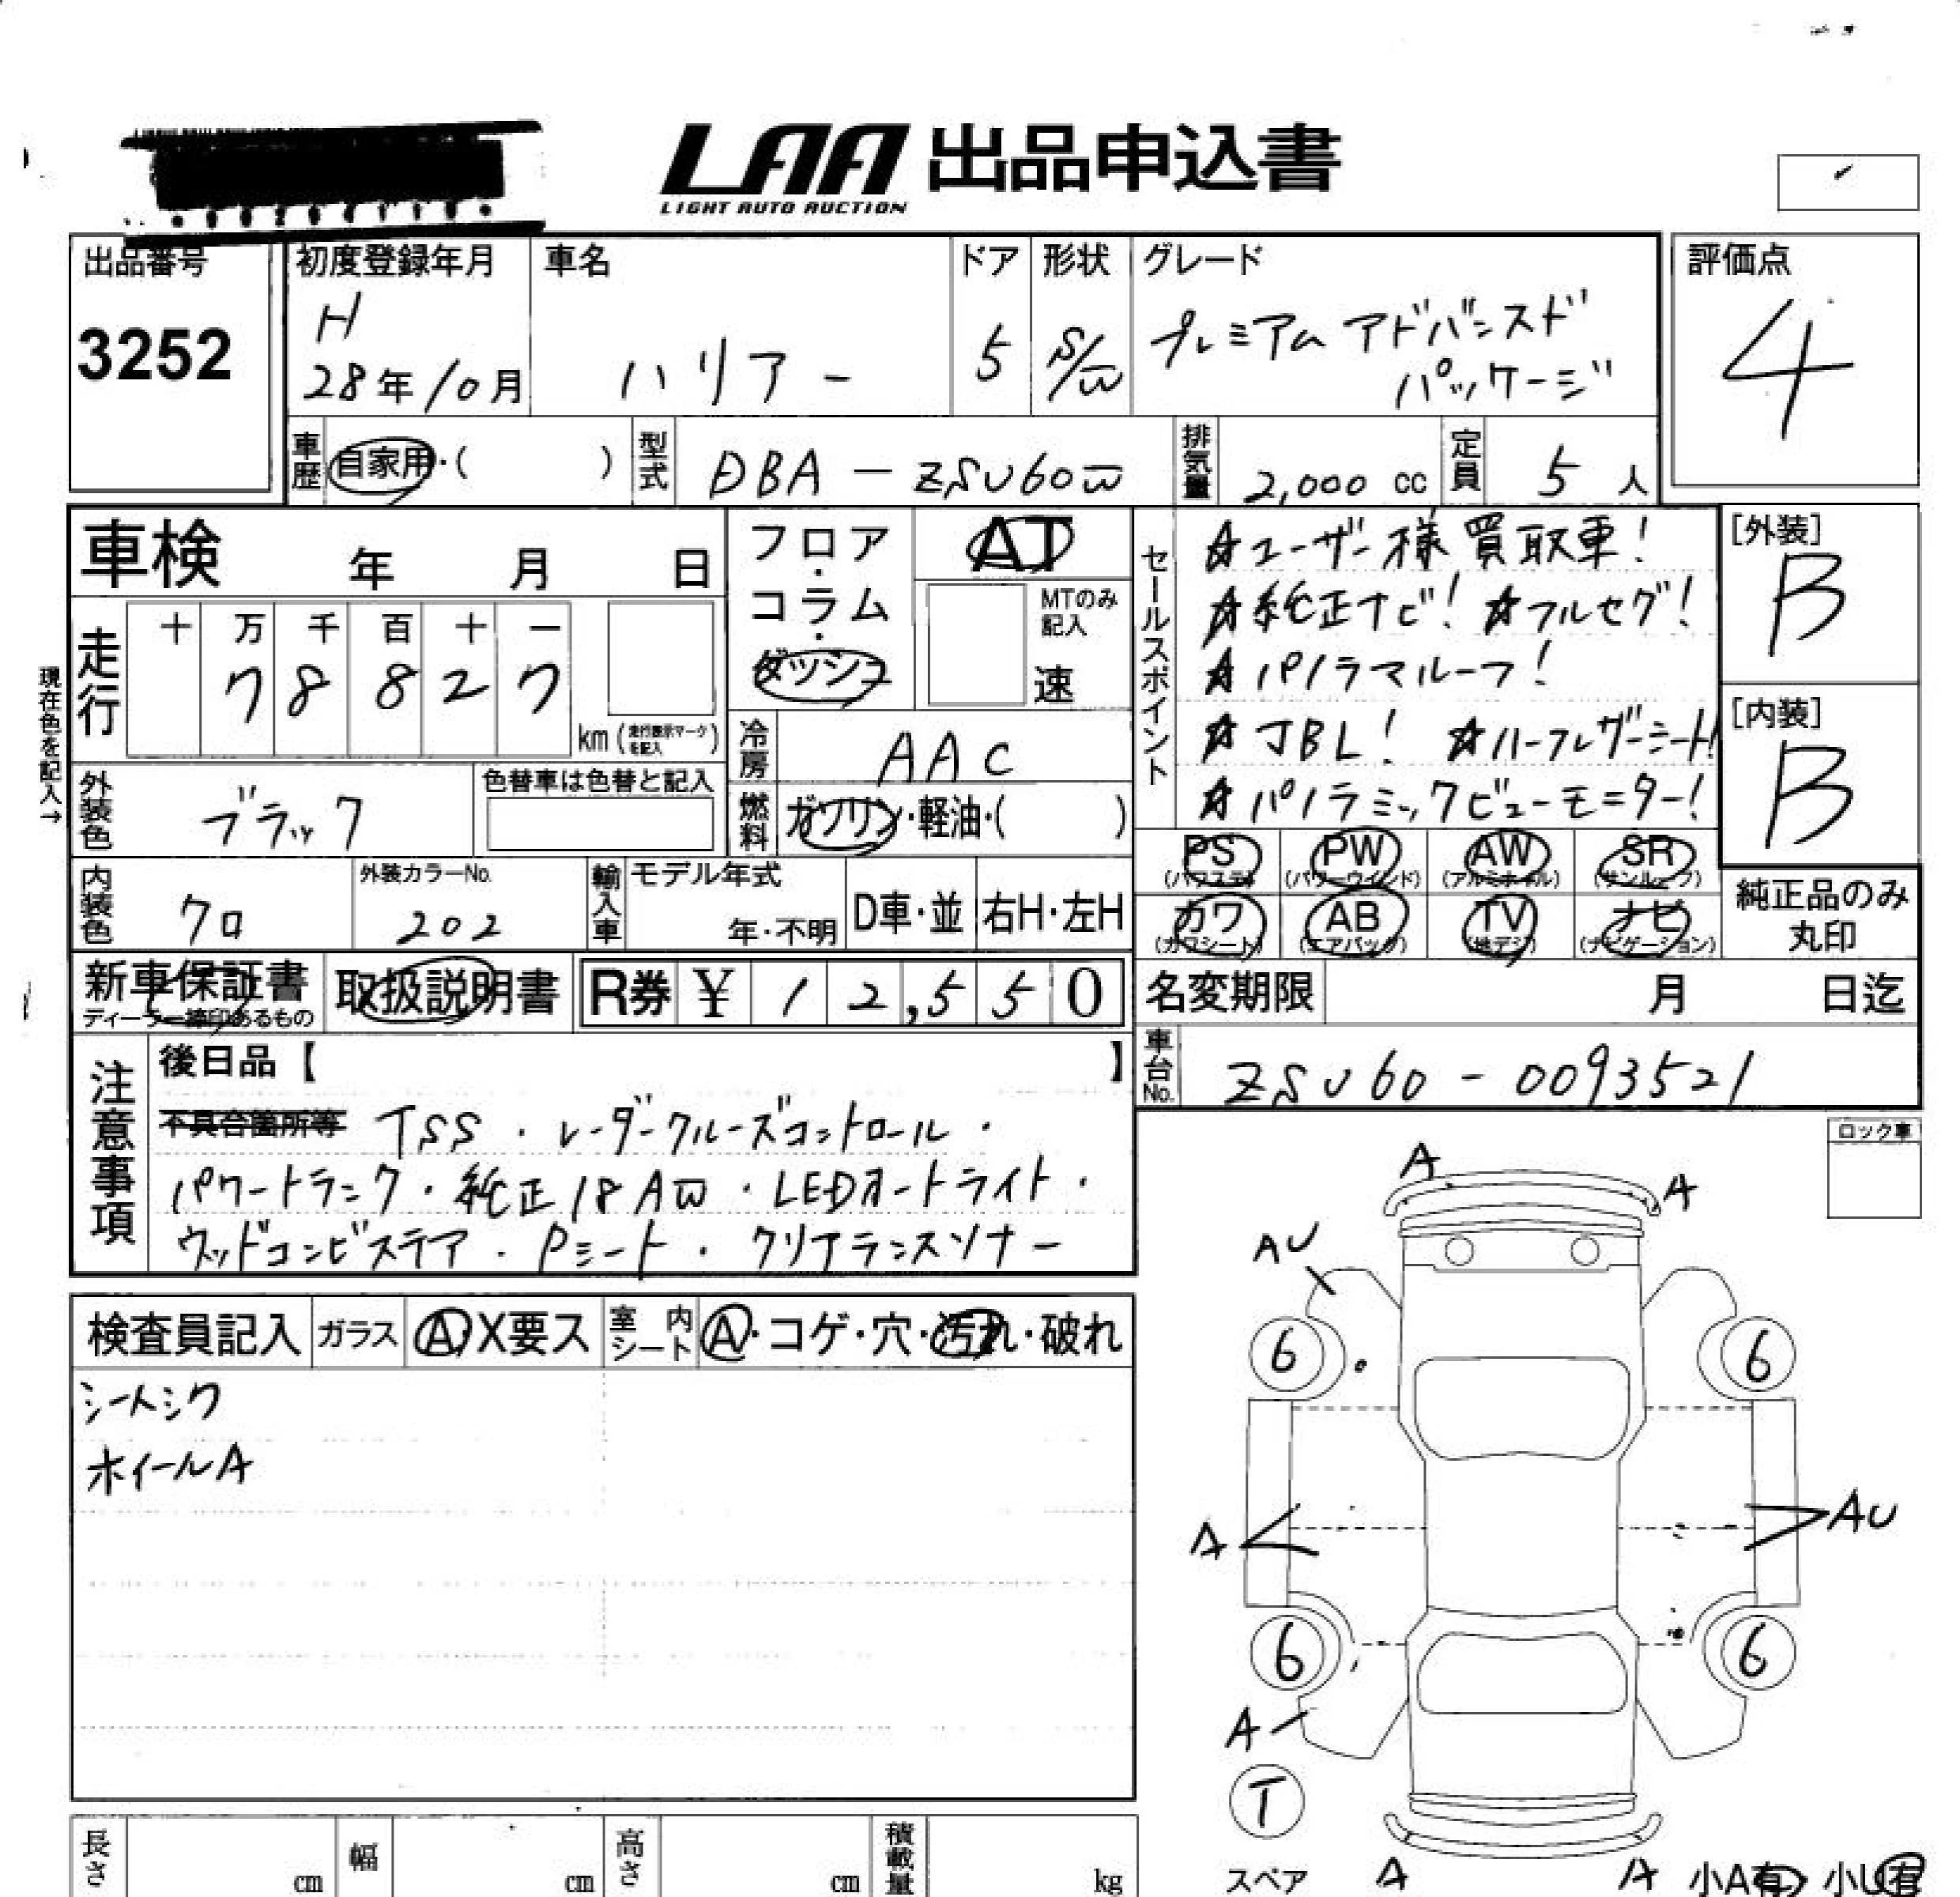 LAA 出品申込書
LIGHT AUTO AUCTION
出品番号
3252
初度登録年月
H
28年10月
車名
ハリアー
ドア
5
形状
S/W
グレード
プレミアム アドバンスド
パッケージ
評価点
4
車歴
自家用・( )
型式
DBA-ZSU60W
排気量
2,000 cc
定員
5 人
車検 年 月 日
フロア・コラム・ダッシュ
AT
MTのみ
記入
速
走行
十 万 千 百 十 一
7 8 8 2 7
km(走行表示マークを記入)
現在色を記入→
冷房
AAC
燃料
ガソリン・軽油・( )
外装色
ブラック
色替車は色替と記入
内装色
クロ
外装カラーNo.
202
輸入車
モデル年式
年・不明
D車・並
右H・左H
セールスポイント
☆ユーザー様買取車!
☆純正ナビ! ☆フルセグ!
☆パノラマルーフ!
☆JBL! ☆ハーフレザーシート!
☆パノラミックビューモニター!
[外装]
B
[内装]
B
PS (パワステ)
PW (パワーウインド)
AW (アルミホイル)
SR (サンルーフ)
カワ (カワシート)
AB (エアバック)
TV (地デジ)
ナビ (ナビゲーション)
純正品のみ
丸印
新車保証書
ディーラー捺印あるもの
取扱説明書
R券 ¥ 12,550
名変期限 月 日迄
車台No.
ZSU60-0093521
注意事項
後日品【 】
不具合箇所等 TSS・レーダークルーズコントロール・
パワートランク・純正18AW・LEDオートライト・
ウッドコンビステア・Pシート・クリアランスソナー
ロック車
検査員記入
ガラス
A・X要ス
室内
シート
A・コゲ・穴・汚れ・破れ
シートシワ
ホイールA
A
A
AU
6
6
A
AU
6
6
A
T
スペア
A
A
小A有 小U有
長さ cm
幅 cm
高さ cm
積載量 kg